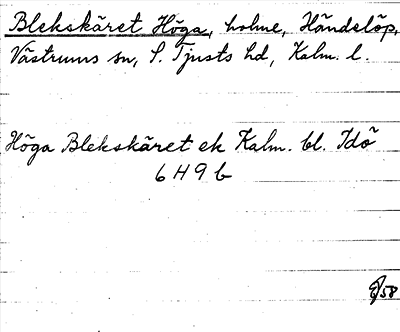 Blekskäret Höga, holme, Händelöp,
Västrums sn, S. Tjusts hd, Kalm. l.
Höga Blekskäret ek Kalm. bl. Idö
6 H 9 b
/58